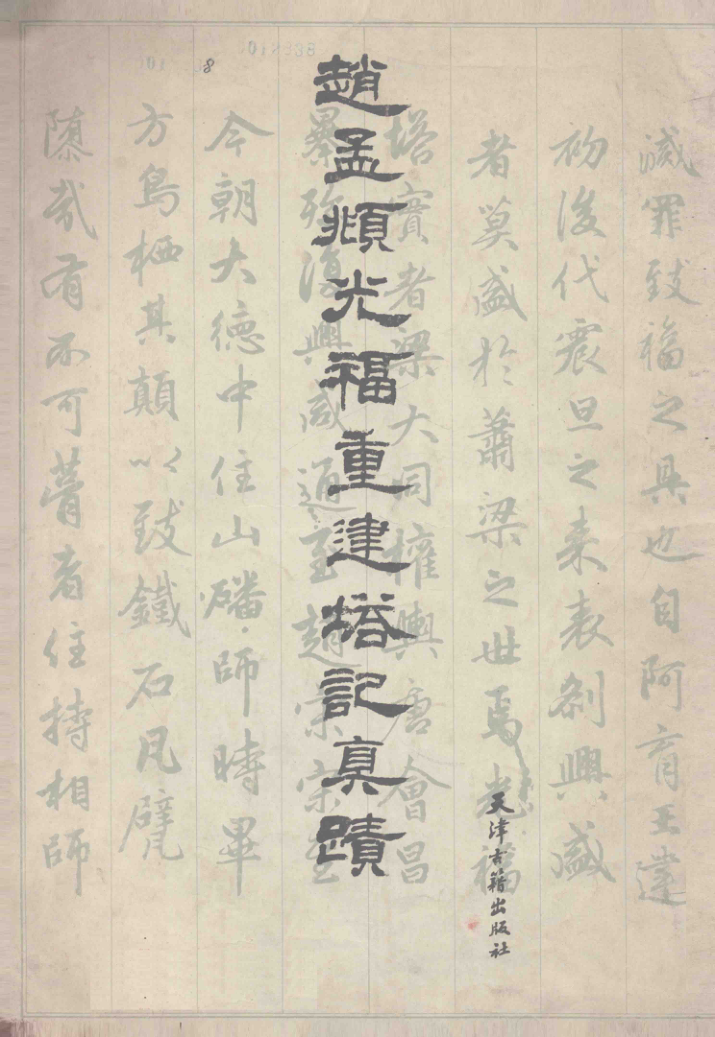 趙孟頫光福重建塔記真蹟
天津古籍出版社
滅罪致福之具也自阿育王建
後代震旦之來表刹興盛
者莫盛於蕭梁之世焉光福
塔實者梁大同權輿唐會昌
暴殄復興咸通至趙宋
今朝大德中住山磻師時畢
方鳥栖其顛以致鐵石甓
隳哉有不可者住持相師